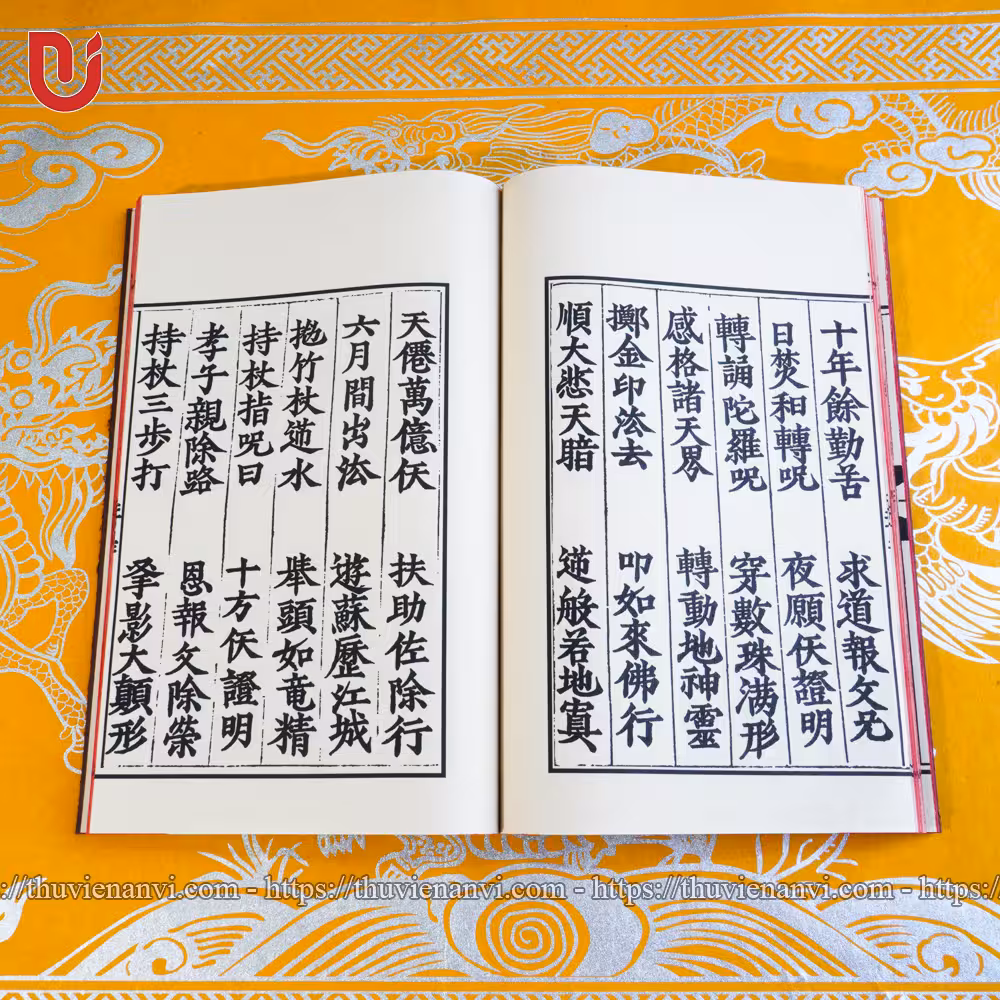 十年餘勤苦 求道報父兄
日焚和轉呪 夜願仸證明
轉誦陀羅呪 穿數珠满形
感格諸天界 轉動地神靈
擲金印法去 叩如來佛行
順大悲天暗 逆般若地寘
天僊萬億仸 扶助佐除行
六月間出法 遊蘇歷江城
拋竹杖逆水 舉頭如竜精
持杖指呪曰 十方仸證明
孝子親除路 恩報父除榮
持杖三步打 影大顛形
https://thuvienanvi.com - https://thuvienanvi.com - https://thuvienanvi.com - https://